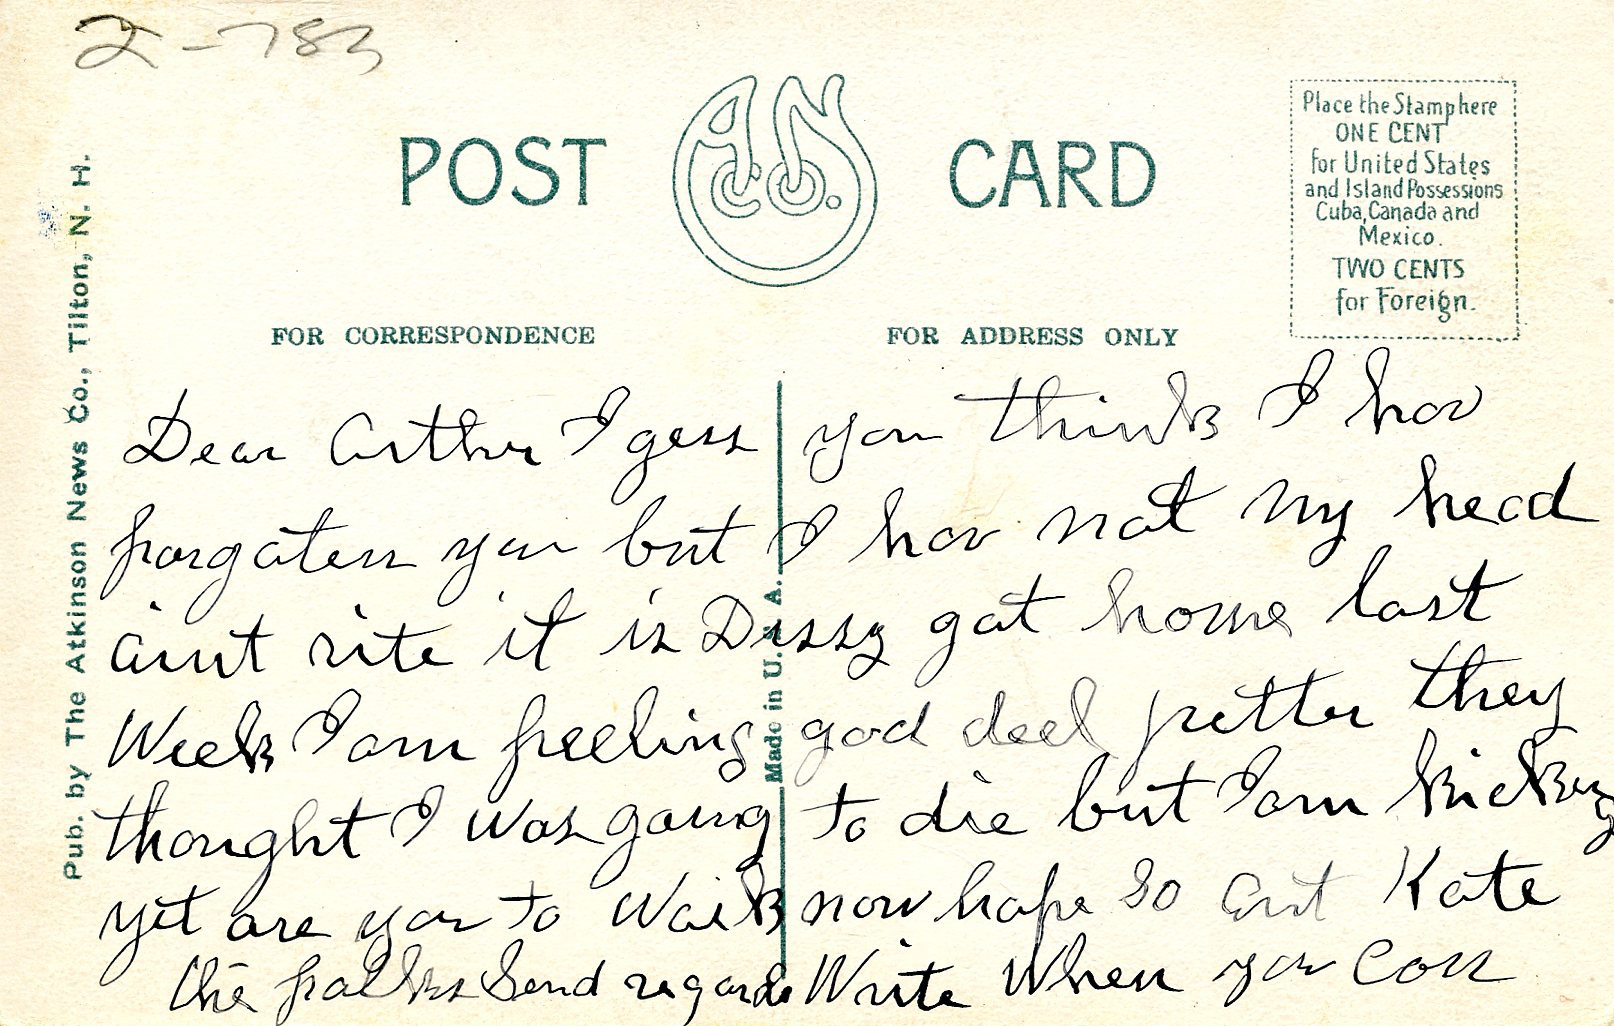 2-783
POST CARD
A N Co.
Place the Stamp here
ONE CENT
for United States
and Island Possessions
Cuba, Canada and
Mexico.
TWO CENTS
for Foreign.
FOR CORRESPONDENCE
FOR ADDRESS ONLY
Pub. by The Atkinson News Co., Tilton, N. H.
Made in U. S. A.
Dear Arthur I gess you think I hav
forgaten you but I hav not my head
aint rite it is Dissy gat home last
Week I am feeling god deel petter they
thought I was going to die but I am kicking
yet are you to Waik now hope so Ant Kate
the folks Send regards Write When you Can